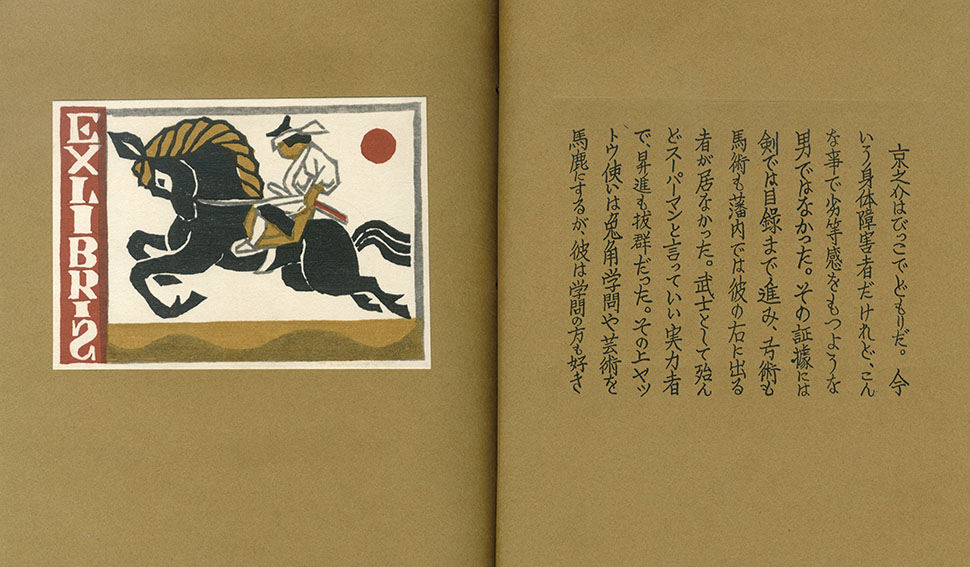 EXLIBRIS
京之介はびっこでどもりだ。今
いう身体障害者だけれど、こん
な事で劣等感をもつような
男ではなかった。その証據には
剣では目録まで進み、弓術も
馬術も藩内では彼の右に出る
者が居なかった。武士として殆ん
どスーパーマンと言っていい実力者
で、昇進も抜群だった。その上ヤッ
トウ使いは兎角学問や芸術を
馬鹿にするが、彼は学問の方も好き